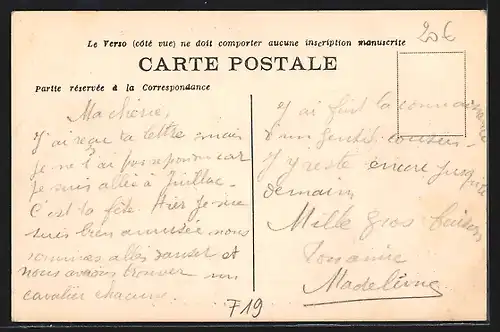 20€
Le Verso (côté vue) ne doit comporter aucune inscription manuscrite
CARTE POSTALE
Partie réservée à la Correspondance
Ma chérie,
J'ai reçu ta lettre mais
je ne t'ai pas répondu car
je suis allée à Juillac.
C'est la fête. Hier je me
suis bien amusée nous
sommes allés danser et
nous avions trouver un
cavalier chacune.
J'ai fait la connaissance
d'un gentil cousin.
J'y reste encore jusqu'à
demain
Mille gros baisers
Ton amie
Madeleine
F19